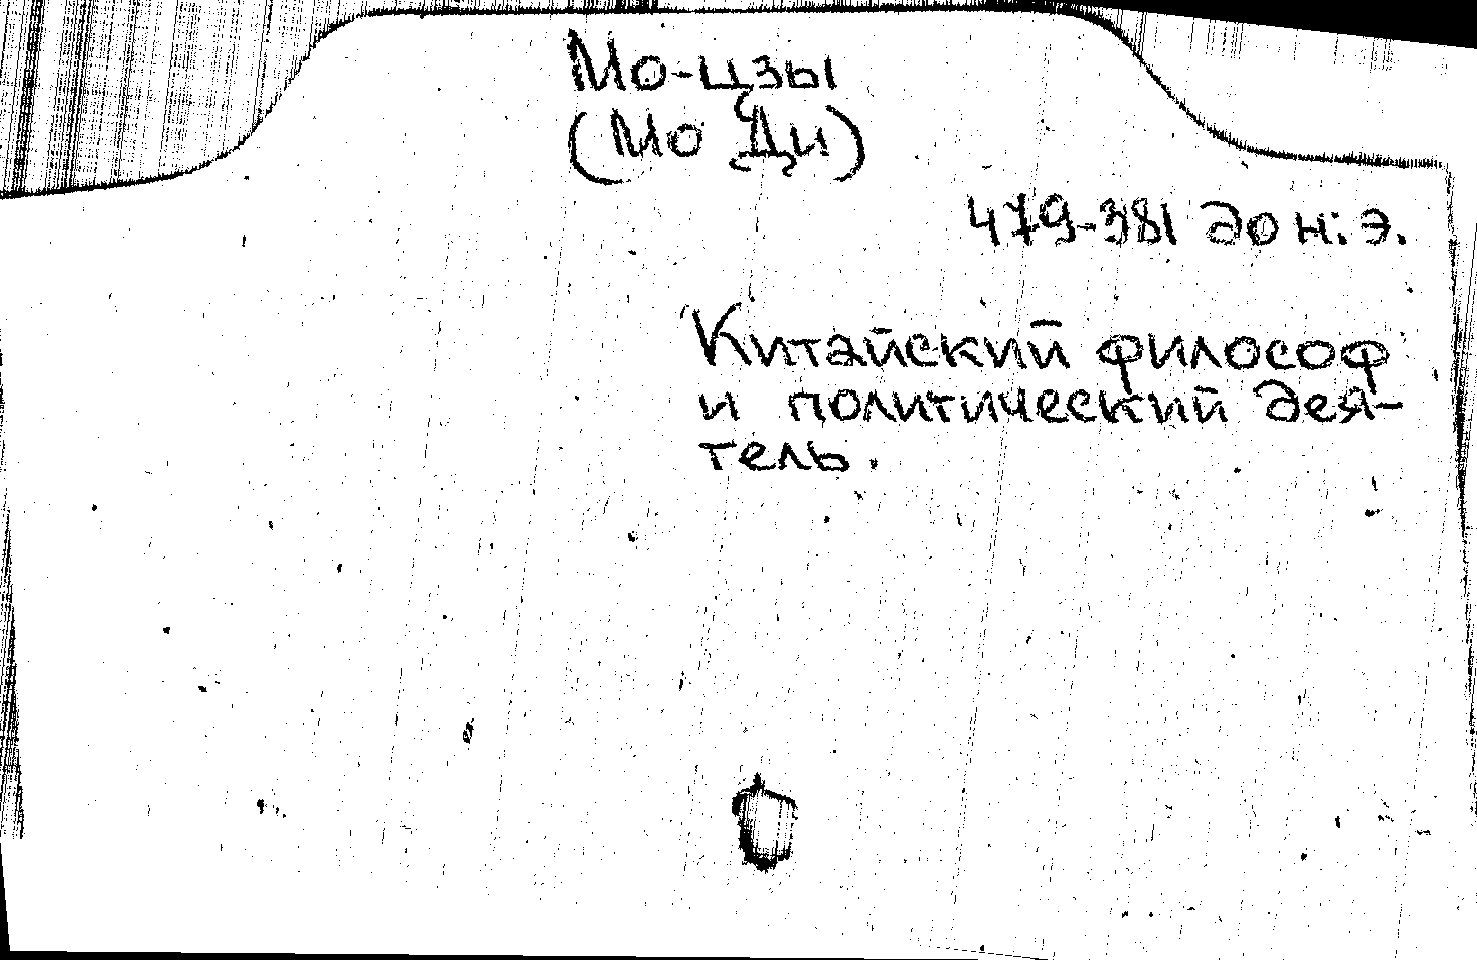 Мо-цзы
(Мо Ди)
479-381 до н.э.
Китайский философ
и политический дея-
тель.